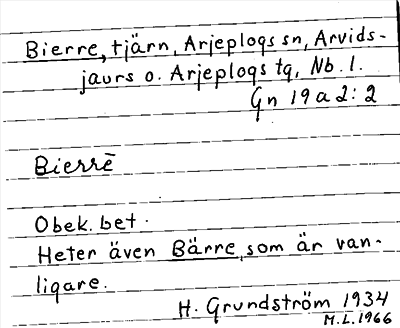 Bierre, tjärn, Arjeplogs sn, Arvids-
jaurs o. Arjeplogs tg, Nb. l.
Gn 19 a 2:2
Bierrē
Obek. bet.
Heter även Bärre, som är van-
ligare.
H. Grundström 1934
M.L. 1966